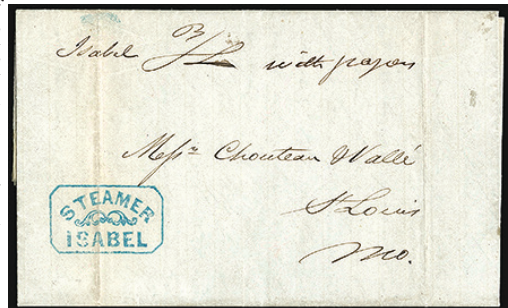 Isabel B/L with papers
Messrs Chouteau & Vallé
St Louis
Mo.
STEAMER
ISABEL